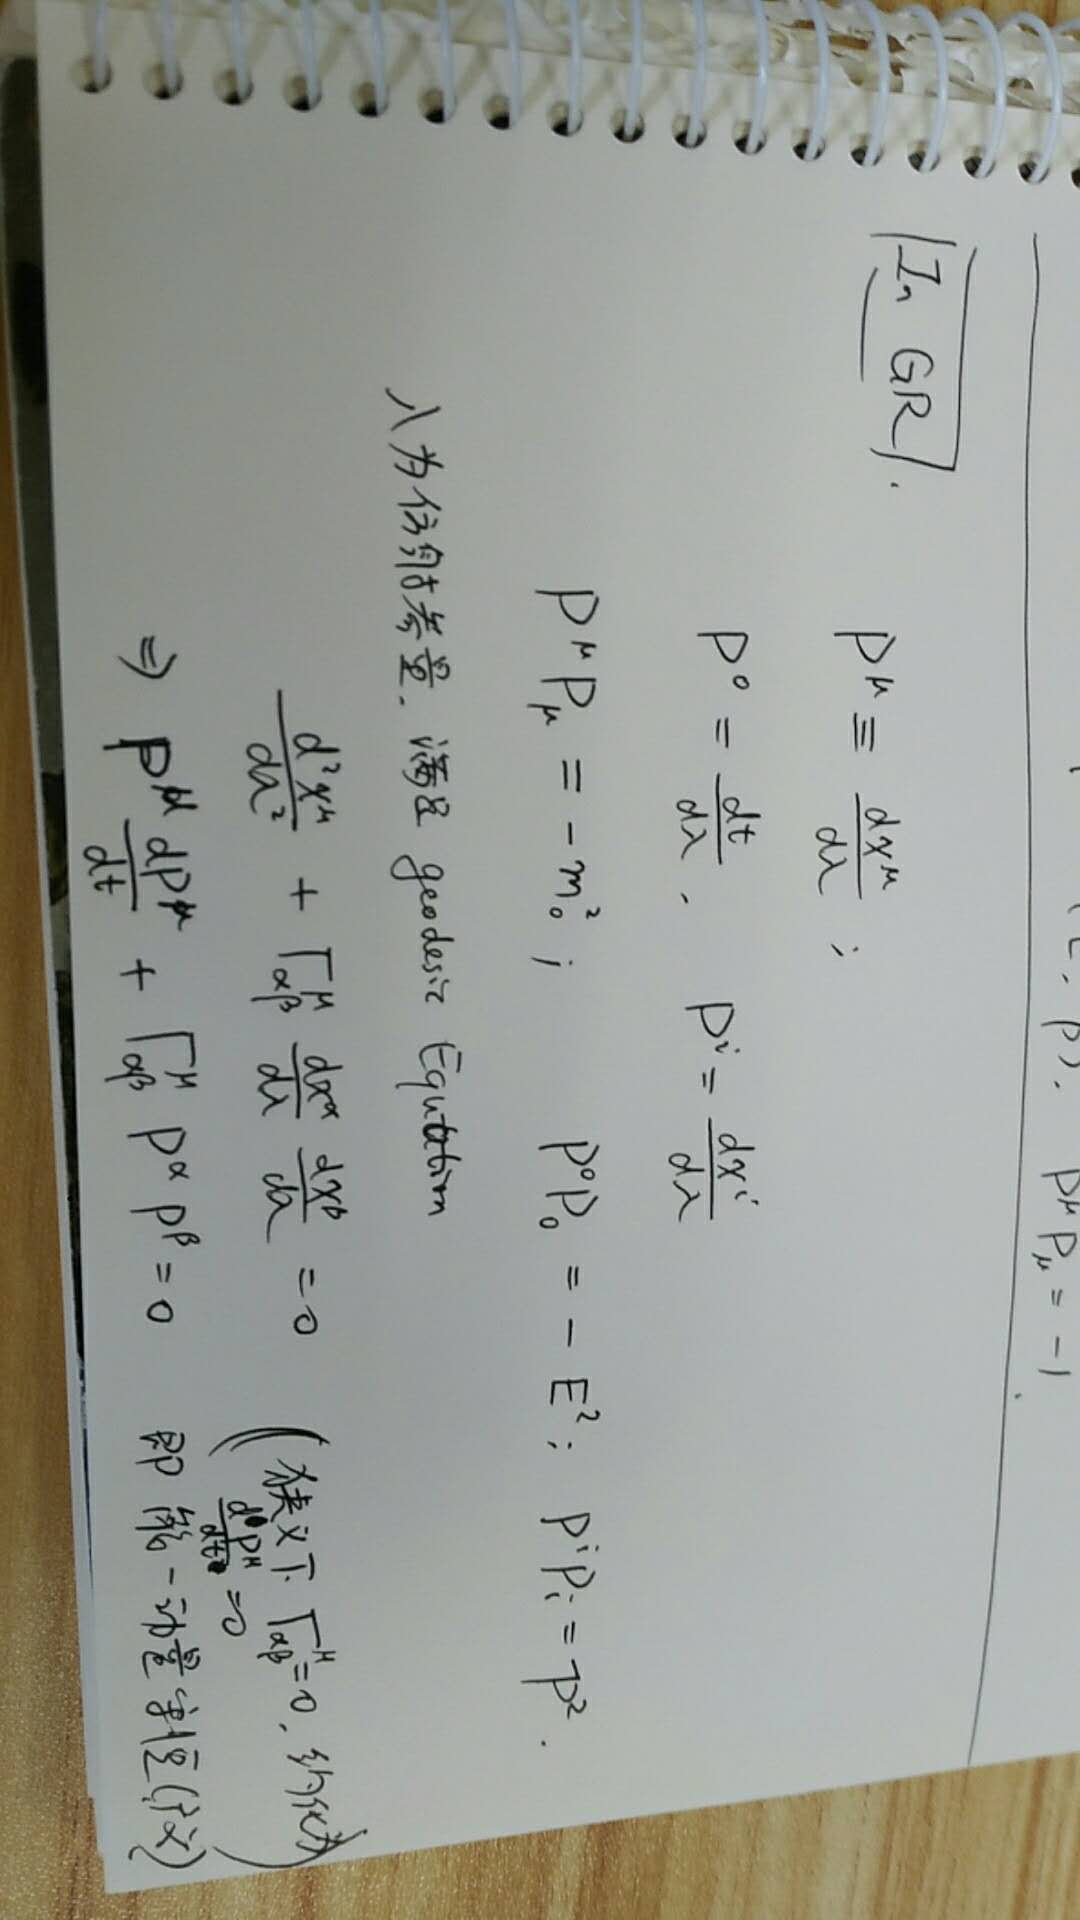 (E, P). P^μ P_μ = -1.
In GR.
P^μ ≡ dx^μ/dλ ;
P^0 = dt/dλ , P^i = dx^i/dλ
P^μ P_μ = -m_0^2 ; P^0 P_0 = -E^2 ; P^i P_i = P^2 .
λ为仿射参量. 满足 geodesic Equtation
d^2x^μ/dλ^2 + Γ^μ_αβ dx^α/dλ dx^β/dλ = 0 (狭义下 Γ^μ_αβ = 0, 约化为
dP^μ/dt = 0 )
⇒ P^μ dP^μ/dt + Γ^μ_αβ P^α P^β = 0 即能-动量守恒(广义)